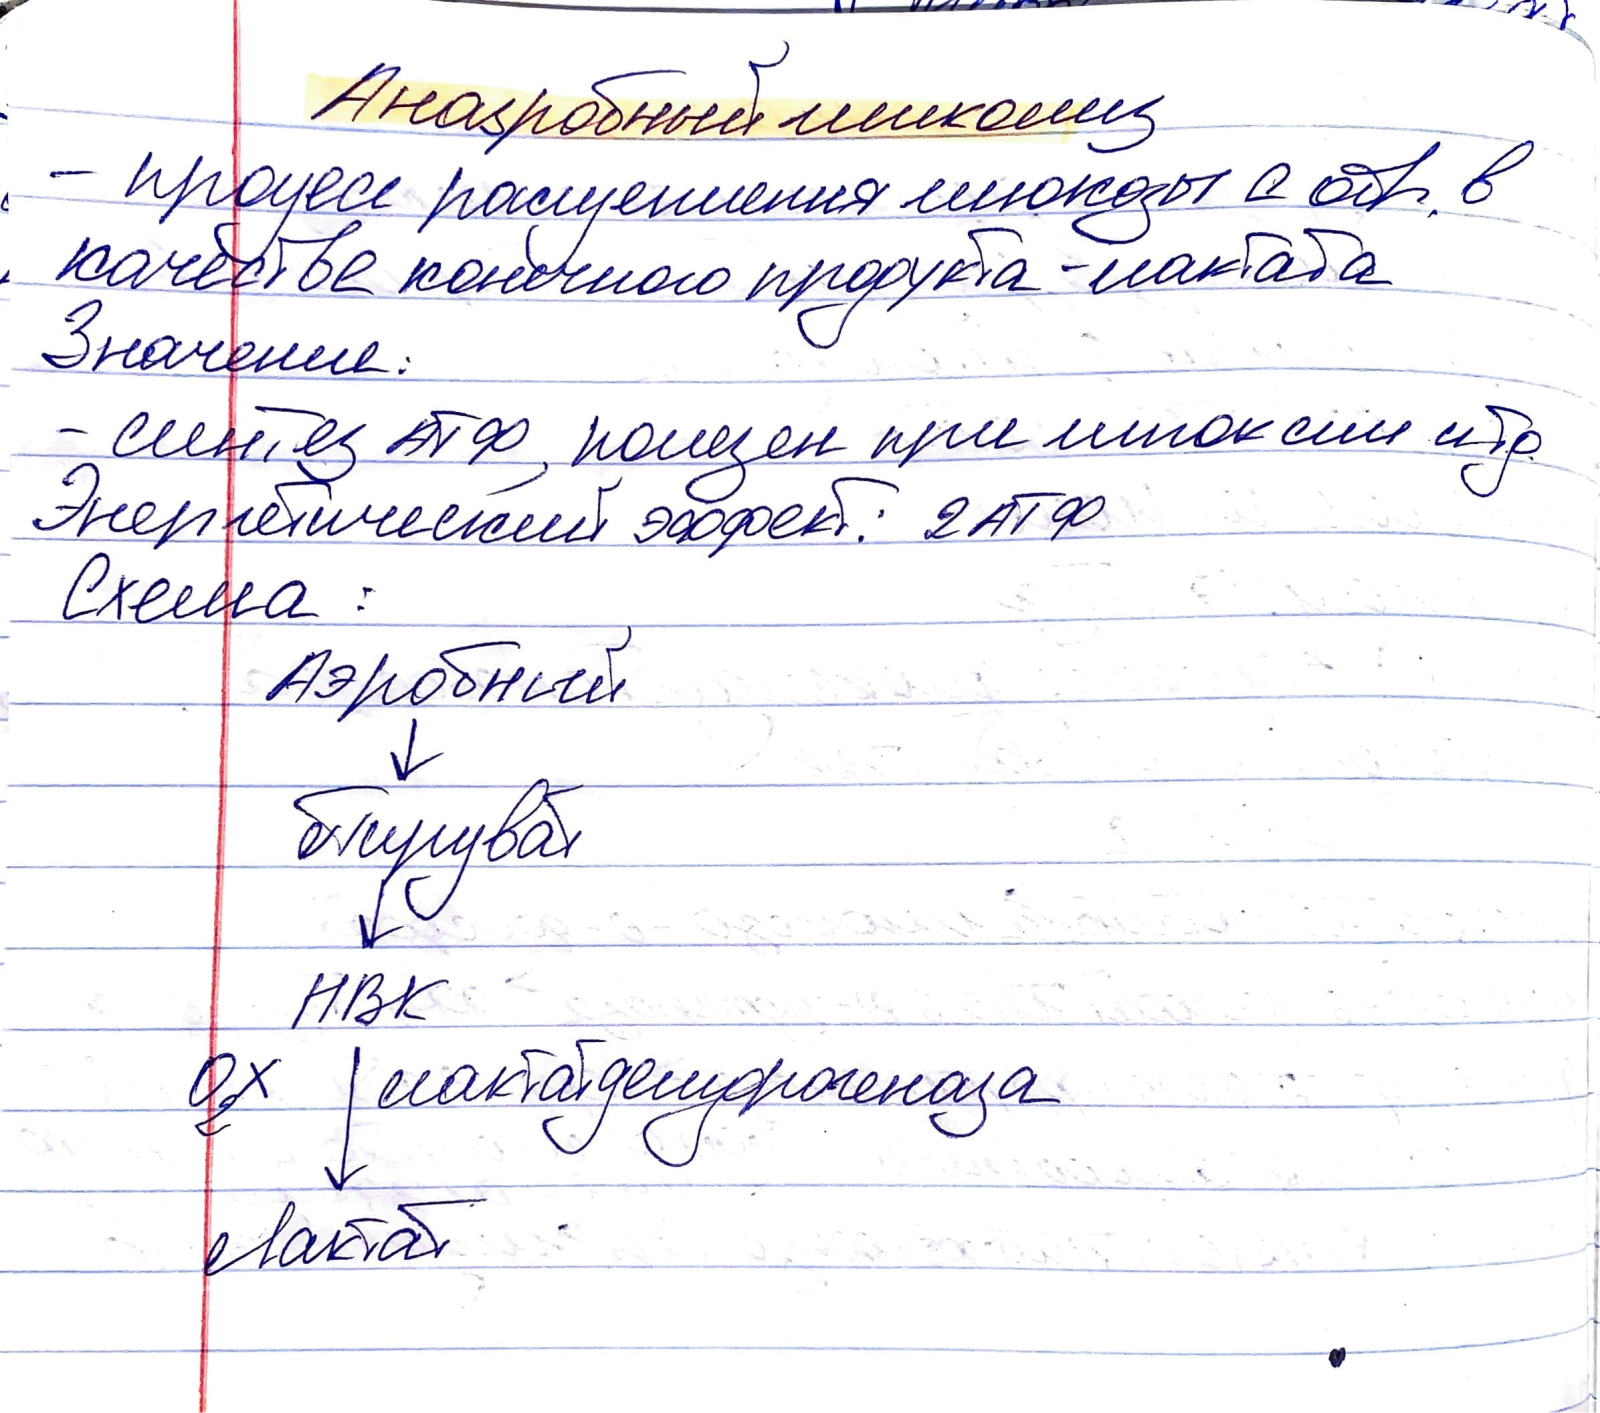 Анаэробный гликолиз
- процесс расщепления глюкозы с обр. в
качестве конечного продукта - лактата
Значение:
- синтез АТФ, полезен при гипоксии и тр.
Энергетический эффект: 2 АТФ
Схема:
Аэробный
↓
пируват
↓
НВК
O₂X лактатдегидрогеназа
↓
Лактат